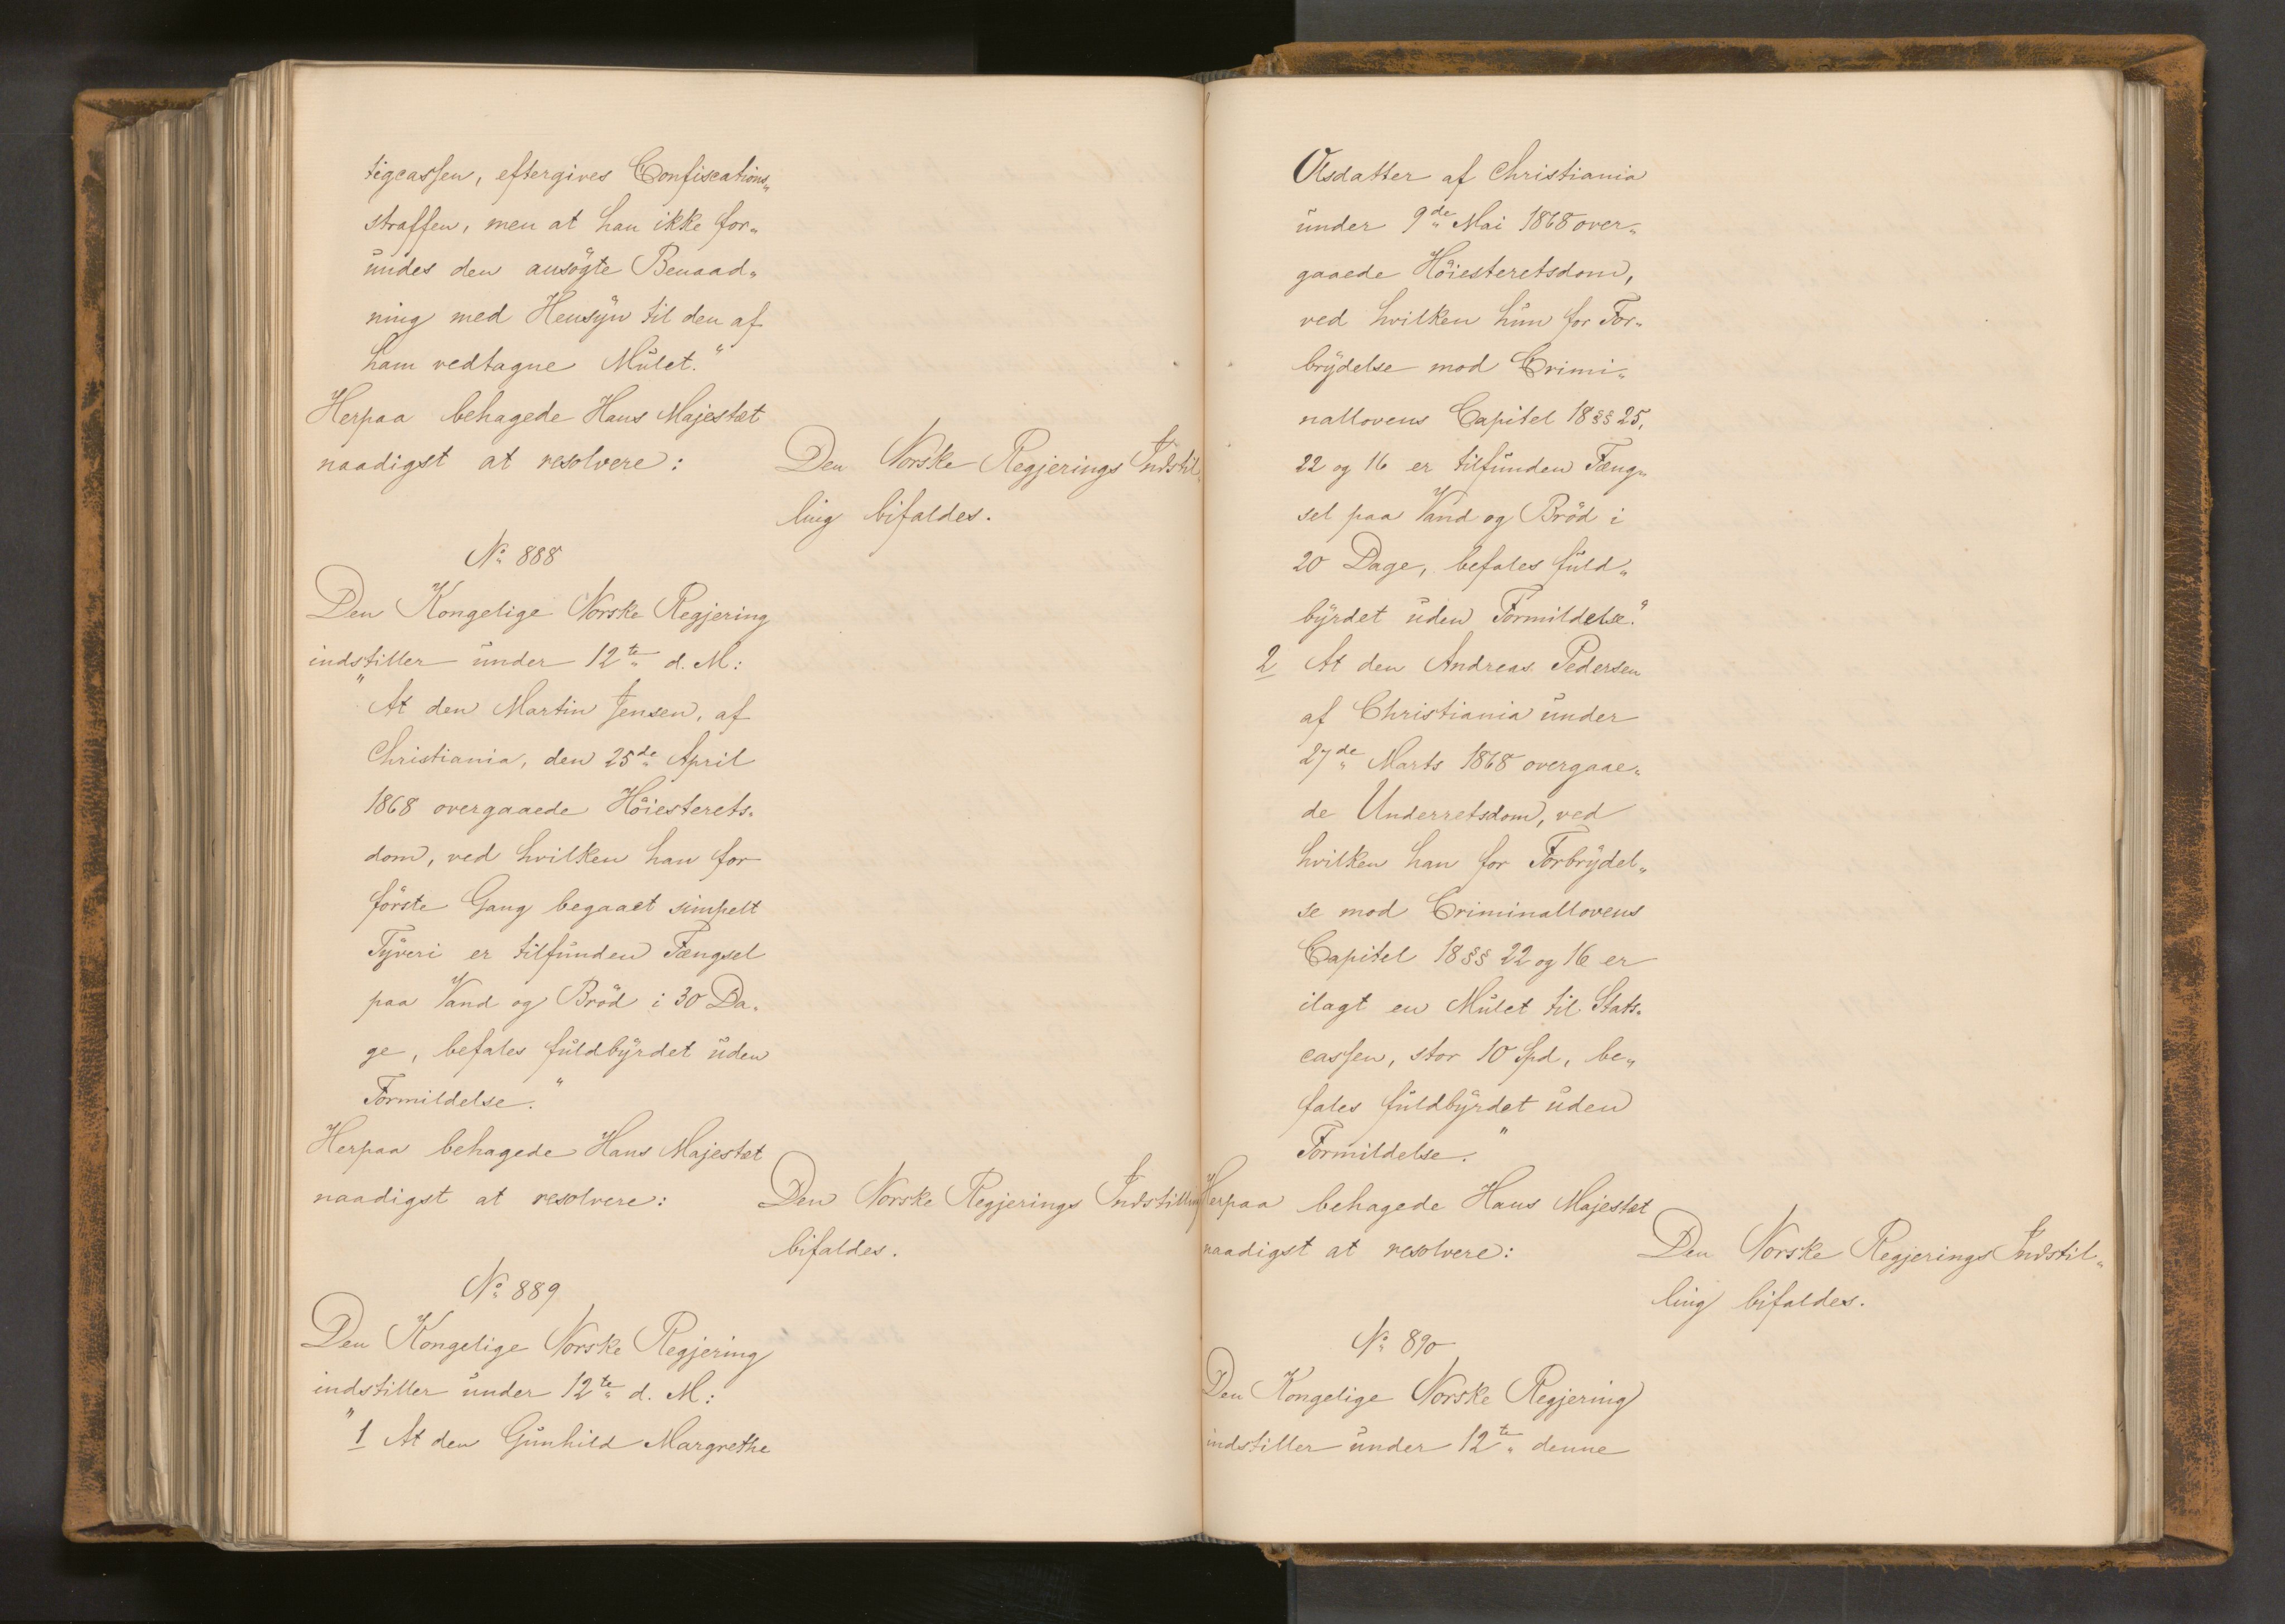 tigcassen, eftergives Confiscations„
straffen, men at han ikke for„
undes den ansögte Benaad„
ning med Hensyn til den af
ham vedtagne Mulct."
Herpaa behagede Hans Majestæt
naadigst at resolvere:
Den Norske Regjerings Indstil„
ling bifaldes.
No 888
Den Kongelige Norske Regjering
indstiller under 12te d. M:
"At den Martin Jensen, af
Christiania, den 25de April
1868 overgaaede Höiesterets„
dom, ved hvilken han for
förste Gang begaaet simpelt
Tyveri er tilfunden Fængsel
paa Vand og Bröd i 30 Da„
ge, befales fuldbyrdet uden
Formildelse."
Herpaa behagede Hans Majestæt
naadigst at resolvere:
Den Norske Regjerings Indstilling
bifaldes.
No 889
Den Kongelige Norske Regjering
indstiller under 12te d. M:
"1 At den Gunhild Margrethe
Olsdatter af Christiania
under 9de Mai 1868 over„
gaaede Höiesteretsdom,
ved hvilken hun for For„
brydelse mod Crimi„
nallovens Capitel 18 §§ 25,
22 og 16 er tilfunden Fæng„
sel paa Vand og Bröd i
20 Dage, befales fuld„
byrdet uden Formildelse."
2 At den Andreas Pedersen
af Christiania under
27de Marts 1868 overgaae„
de Underretsdom, ved
hvilken han for Forbrydel„
se mod Criminallovens
Capitel 18 §§ 22 og 16 er
ilagt en Mulct til Stats„
cassen, stor 10 Spd, be„
fales fuldbyrdet uden
Formildelse."
Herpaa behagede Hans Majestæt
naadigst at resolvere:
Den Norske Regjerings Indstil„
ling bifaldes.
No 890
Den Kongelige Norske Regjering
indstiller under 12te denne